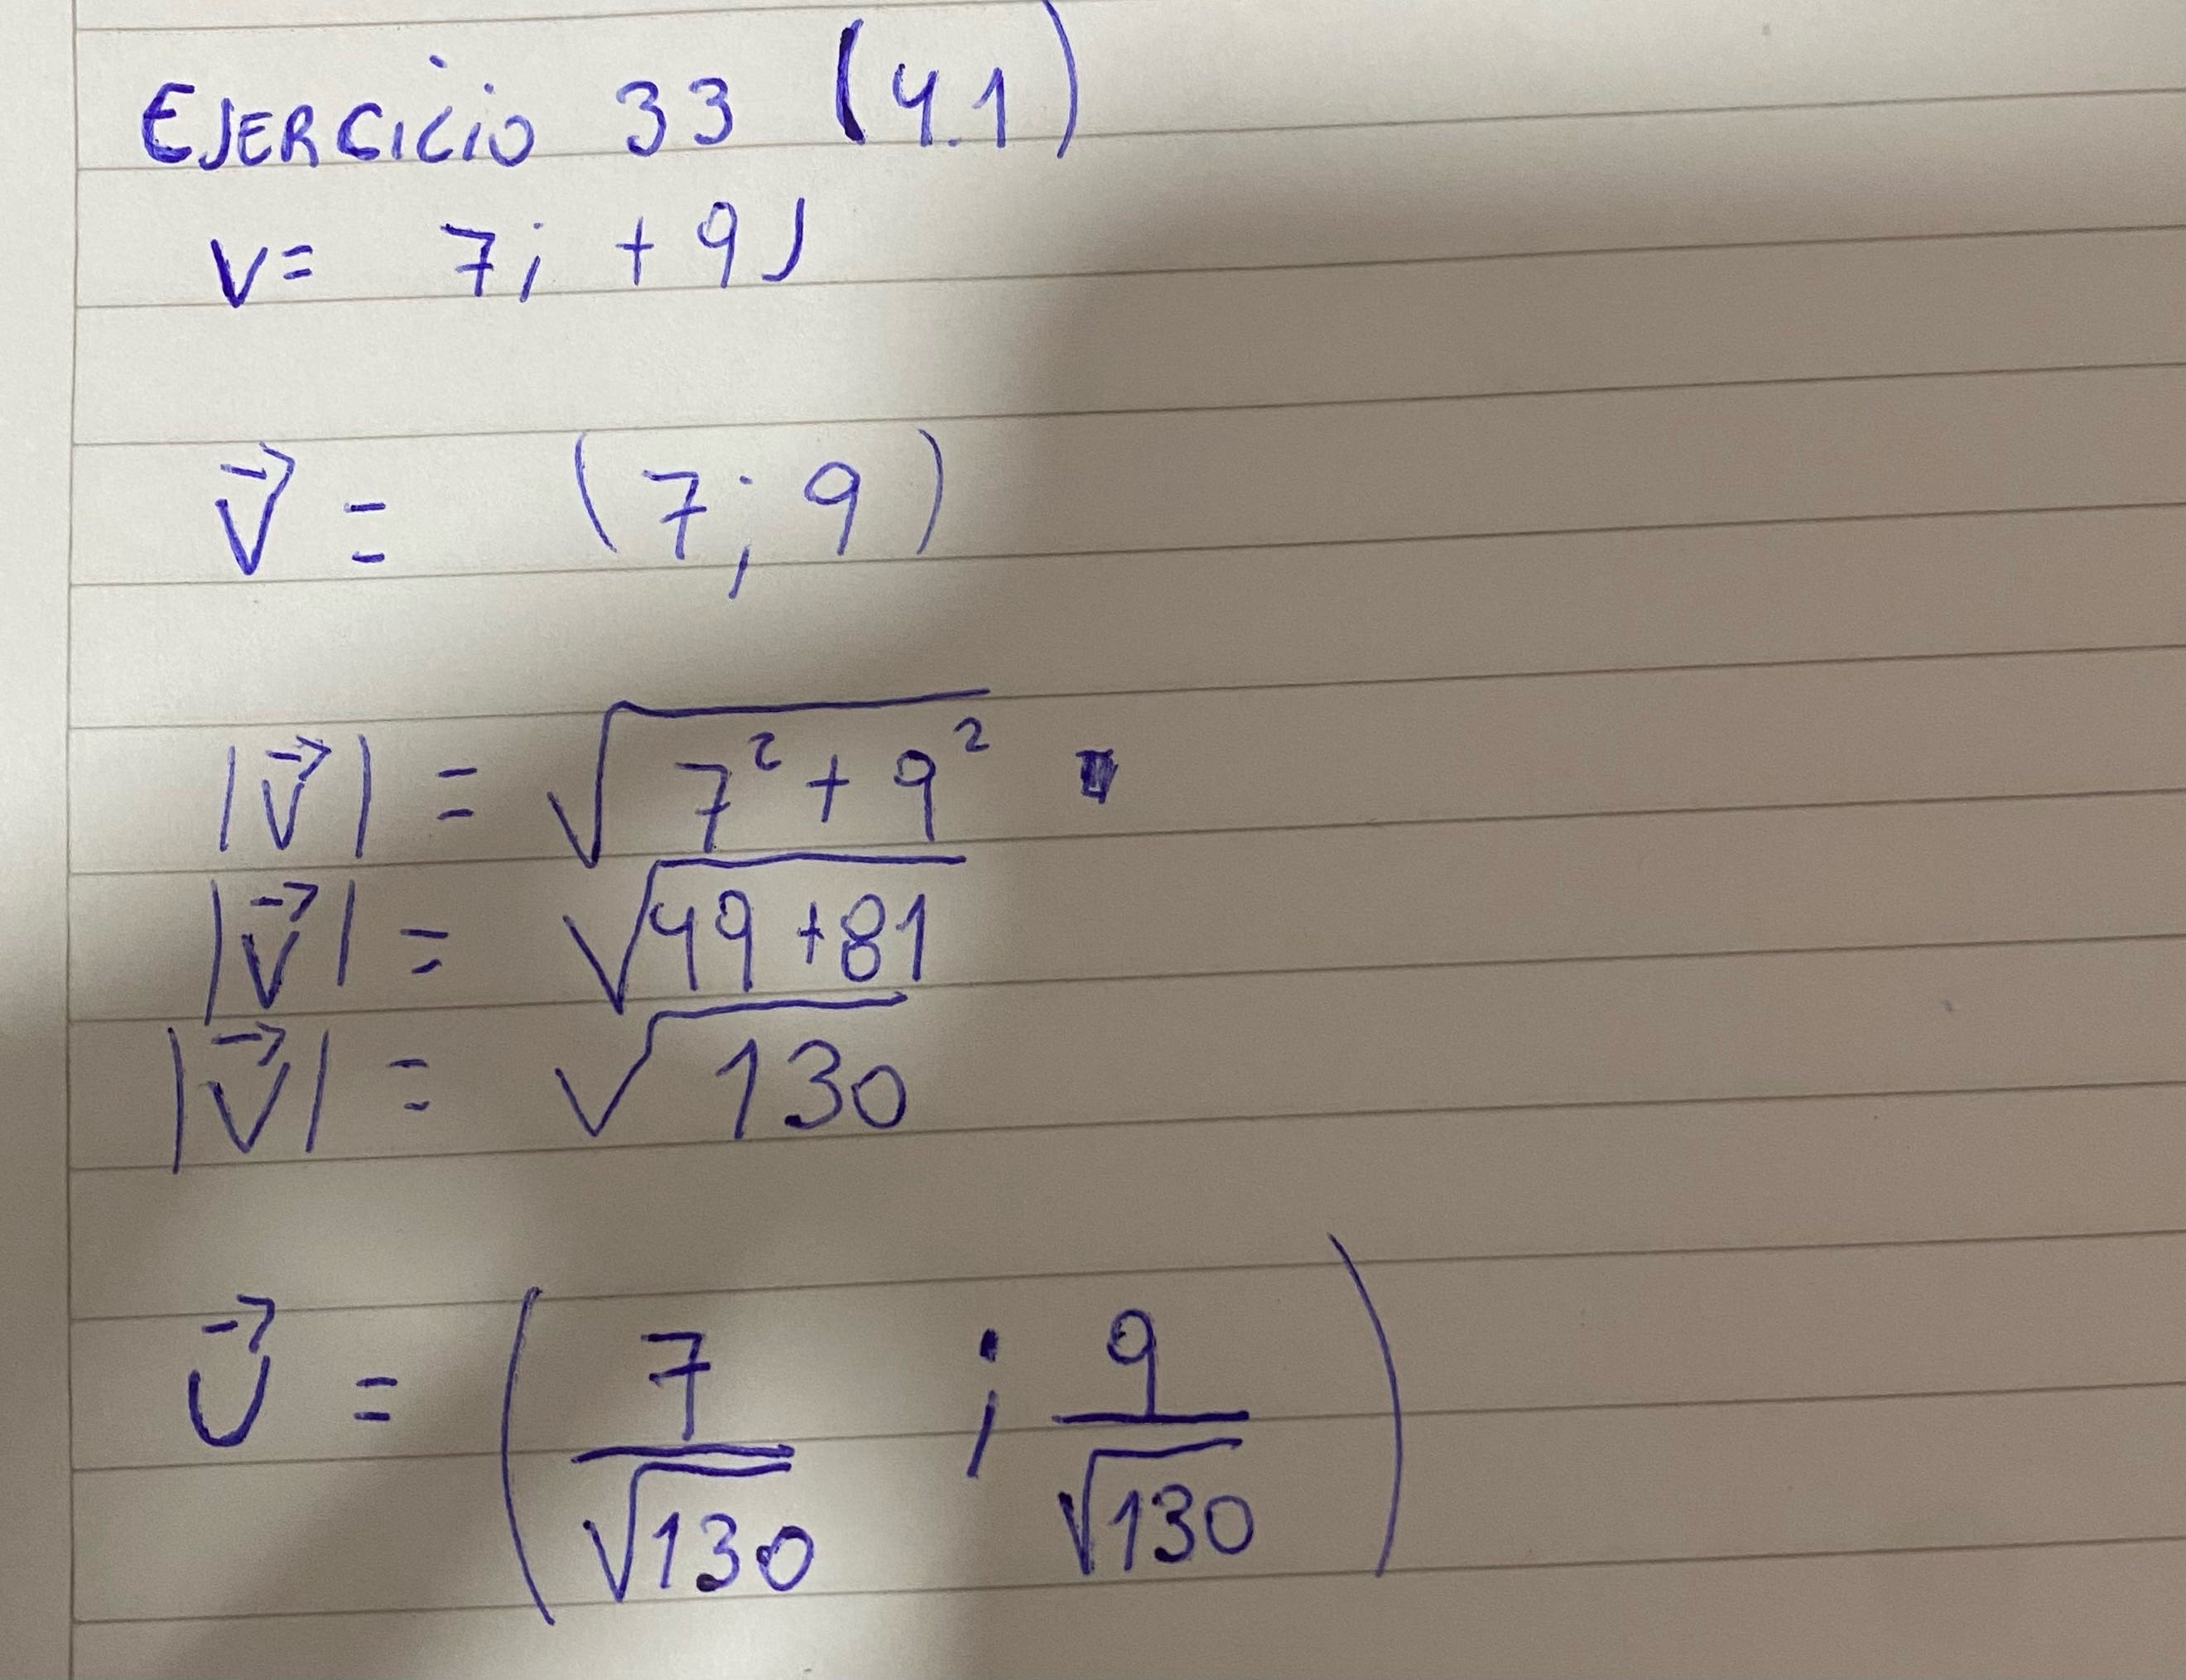 EJERCICIO 33 (4.1)
V= 7i + 9J
V⃗ = (7; 9)
|V⃗| = √(7² + 9²)
|V⃗| = √(49 + 81)
|V⃗| = √130
U⃗ = (7/√130 ; 9/√130)